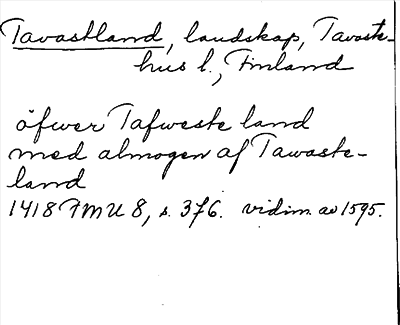 Tavastland, landskap, Tavaste-
hus l., Finland
öfwer Tafweste land
med almogen af Tawaste-
land
1418 FMU 8, s. 376. vidim. av 1595.